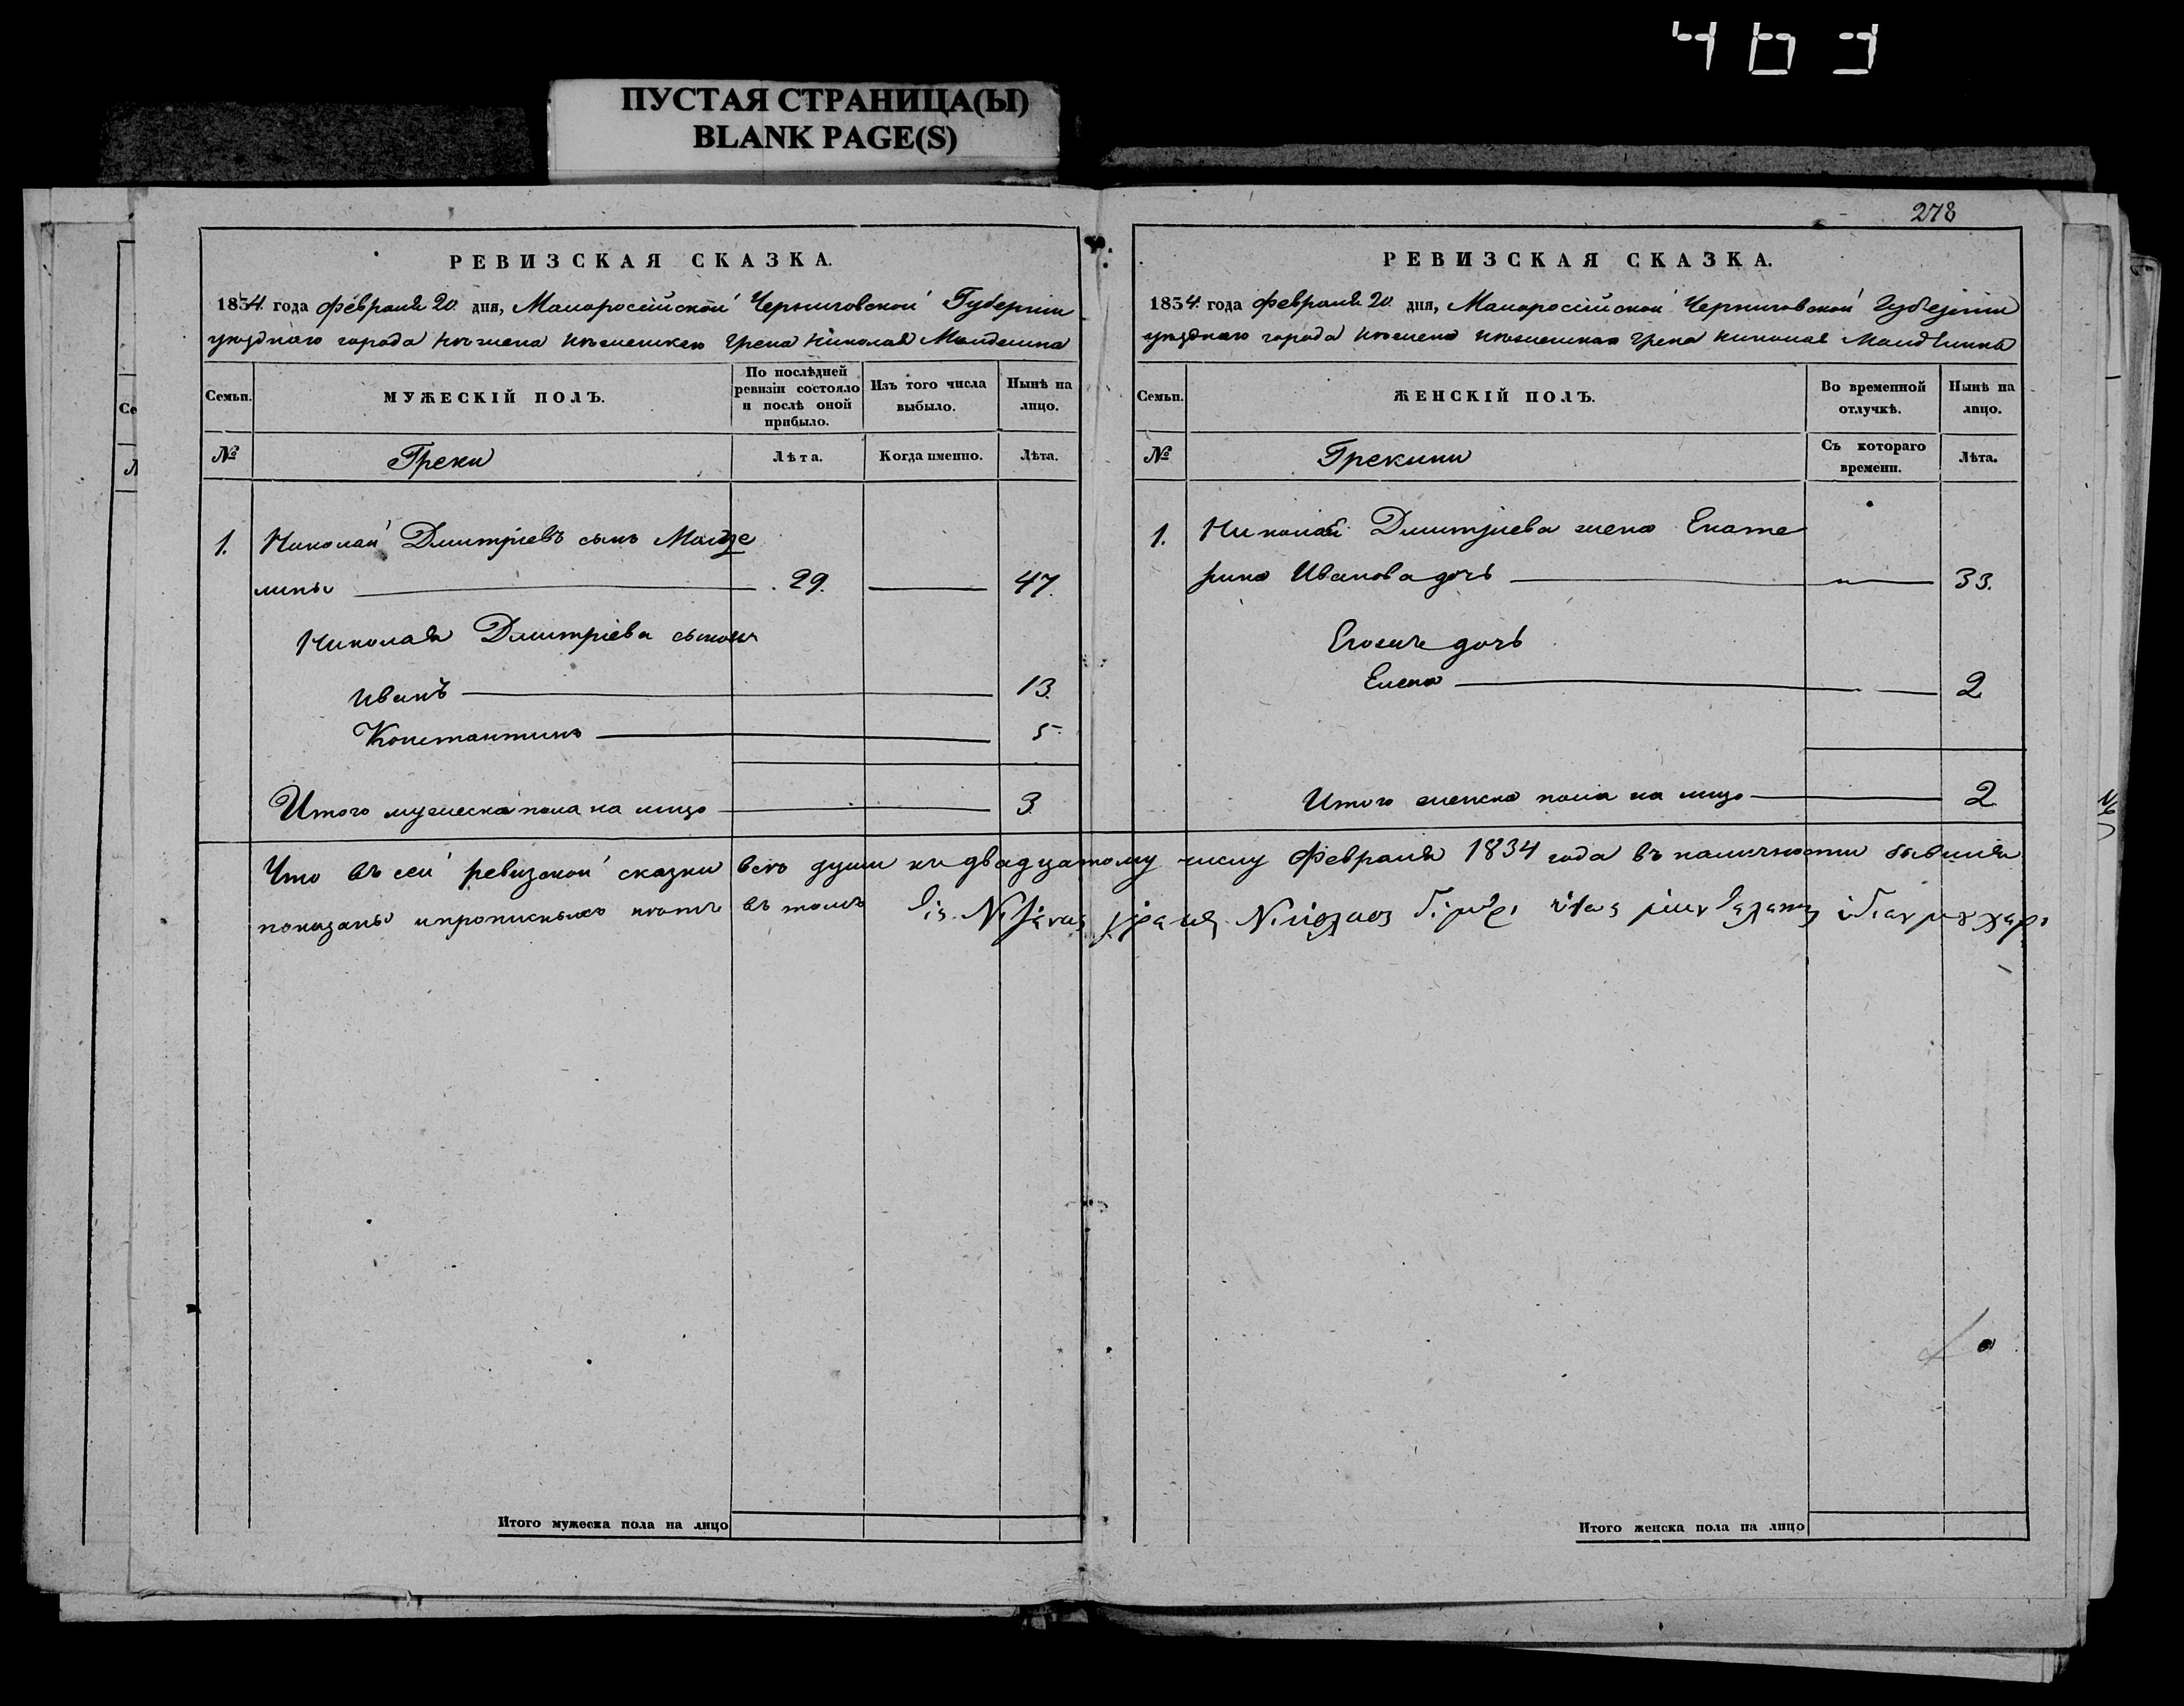 463
ПУСТАЯ СТРАНИЦА(Ы)
BLANK PAGE(S)
РЕВИЗСКАЯ СКАЗКА.
1834 года февраля 20 дня, Малоросійской Черниговской Губерніи
уезднаго города Нежина нежинскаго грека Николая
Семьи.
МУЖЕСКІЙ ПОЛЪ.
По послѣдней ревизіи состояло и послѣ оной прибыло.
Изъ того числа выбыло.
Нынѣ на лицо.
№
Греки
Лѣта.
Когда именно.
Лѣта.
1. Николай Дмитріевъ сынъ
29. 47.
Николая Дмитріева сыновья
Иванъ 13.
Константинъ 5
Итого мужеска пола на лицо 3.
Итого мужеска пола на лицо
278
РЕВИЗСКАЯ СКАЗКА.
1834 года февраля 20 дня, Малоросійской Черниговской Губерніи
уезднаго города Нежина нежинскаго грека Николая
Семьи.
ЖЕНСКІЙ ПОЛЪ.
Во временной отлучкѣ.
Нынѣ на лицо.
№
Грекини
Съ котораго времени.
Лѣта.
1. Николая Дмитріева жена Екате
рина Иванова дочь 33.
Егоже дочь
Елена 2
Итого женска пола на лицо 2
Что въ сей ревизской сказки всѣ души къ двадцатому числу Февраля 1834 года въ наличности бывшия
показаны въ томъ
Итого женска пола на лицо